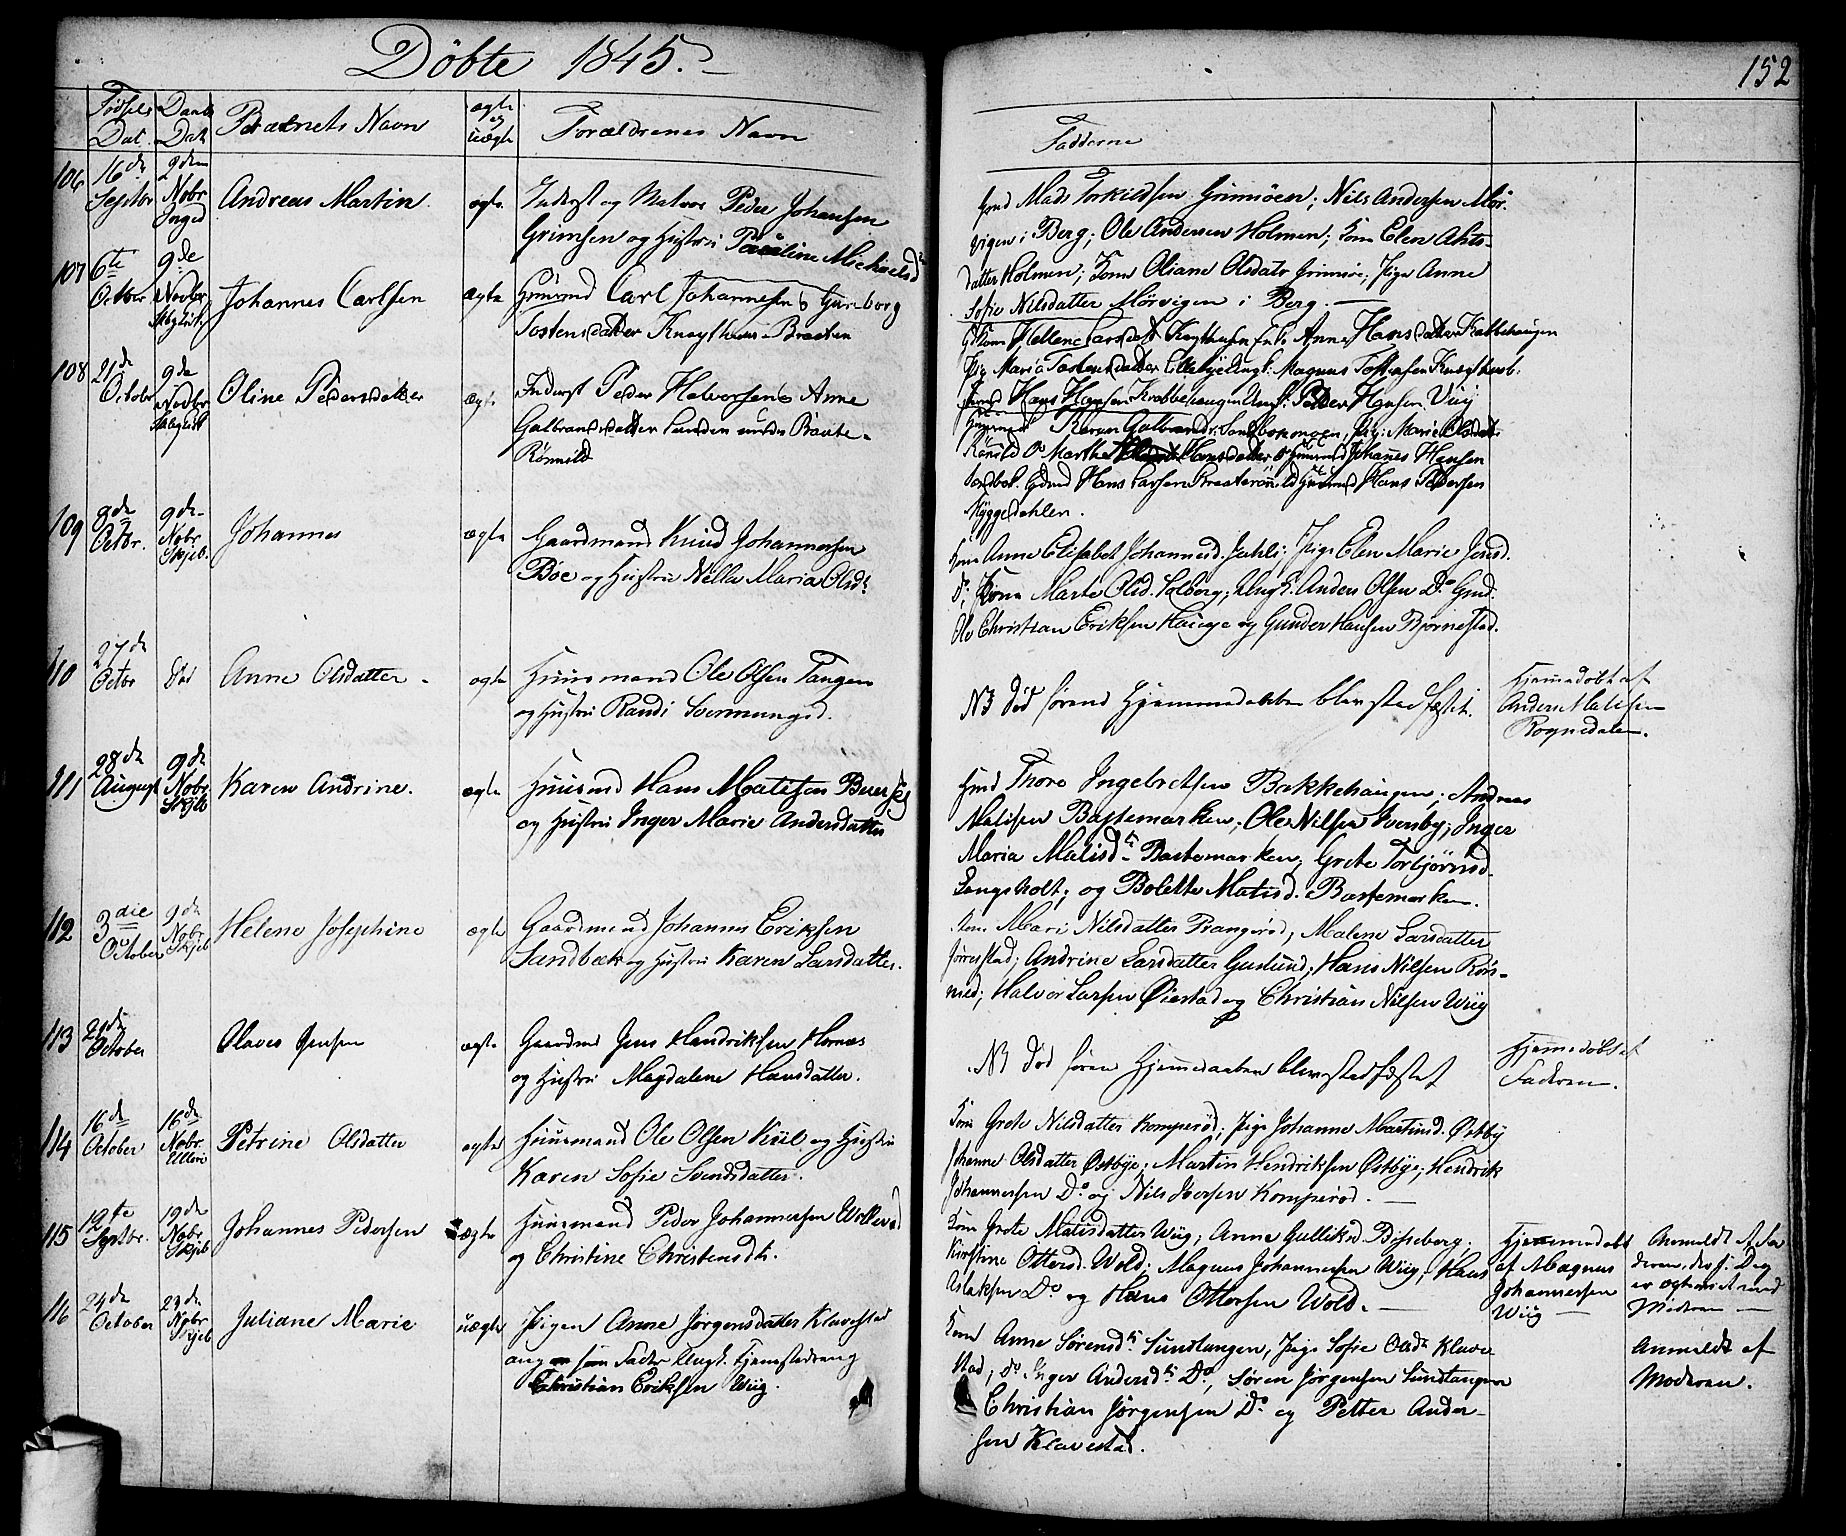 Döbte 1845.
152
Fødsels Dat.
Daabs Dat
Barnets Navn
ægte og uægte
Forældrenes Navn
Fadderne
106
16de Septbr
9den Nobr Inged
Andreas Martin
ægte
Inderst og Matros Peder Johansen
Grimsen og Hustru Pauline Michaelsd
Gmd Mads Torkildsen Grimsöen; Nils Andersen Mör-
vigen i Berg; Ole Andersen Holmen; Kone Elen Ahts-
datter Holmen; Kone Oliane Olsdatr Grimsöe; Pige Anne
Sofie Nilsdatter Mörvigen i Berg.
107
6te Octber
9de Novbr
Johannes Carlsen
ægte
Huusmd Carl Johannesen & Gunborg
Tostensdatter
Anne Hansdatter Krabbehaugen
Pig Maria Tostensdatter
108
21de October
9de Novbr
Oline Pedersdatter
ægte
Inderst Peder Halvorsen & Anne
Gulbrandsdatter Lunden under Braate-
Rönnild
Hans Hansen Krabbehaugen Ungk: Peder Hansen Viig
Huusmd Karen Gulbrandsd: Sandbekmoen, Pig: Marie Olsdatr
Rönild Do Marthe Hansdatter & Huusmd Johannes Hansen
Sandbek Gdmd Hans Larsen Braaterönild Huusmd Hans Pedersen
Hyggedahlen.
109
8de Octbr.
9de Nobr. Skjeb.
Johannes
ægte
Gaardmand Knud Johannessen
Böe og Hustru Nella Maria Olsdr
Kone Anne Elisabet Johannesd. Dahls; Pige Elen Marie Jensd.
Do; Kone Marte Olsd. Solberg; Ungk. Anders Olsen Do Gmd.
Ole Christian Eriksen Hauge og Gunder Hansen Bjørnestad.
110
27de Octbr
Död
Anne Olsdatter
ægte
Huusmand Ole Olsen Tangen
og Hustru Randi Svenungsd.
NB Död förend Hjemmedaaben blev stadfæstet.
Hjemmedöbt af
Anders Matisen
Rognedalen.
111
28de August
9de Nobr. Skjeb
Karen Andrine.
ægte
Huusmd Hans Matisen Buer
og Hustru Inger Marie Andersdatter
Hmd Thore Ingebretsen Bakkehaugen; Andreas
Matisen Bastemarken; Ole Nilsen Kversby; Inger
Maria Matisdtr Bastemarken; Grete Torbjörnsd.
Langsholt; og Bolette Matisd. Bastemarken.
112
3die October
9de Nobr. Skjeb
Helene Josephine
ægte
Gaardmand Johannes Eriksen
Sandbæk og Hustru Karen Larsdatter.
Kone Mari Nilsdatter Prangeröd, Malene Larsdatter
Jörrestad; Andrine Larsdatter Guslund; Hans Nilsen Rös-
med; Halvor Larsen Øiestad og Christian Nilsen Wiig
113
21de October
Olaves Jensen
ægte
Gaardmd Jens Hendriksen Hornæs
og Hustru Magdalene Hansdatter.
NB Död förend Hjemmedaaben blev stadfæstet
Hjemmedöbt af
Faderen.
114
16de October
16de Nobr. Ulleröe
Petrine Olsdatter
ægte
Huusmand Ole Olsen Kiil og Hustru
Karen Sofie Svendsdatter.
Kone Grete Nilsdatter Komperöd; Pige Johanne Martinsd. Østby
Johanne Olsdatter Østbye; Martin Hendriksen Østbye; Hendrik
Johannesen Do og Nils Iversen Komperöd.
115
12te Septbr.
19de Nobr. Skjeb
Johannes Pedersen
uægte
Huusmand Peder Johannessen Willeröd
og Christine Christensdtr.
Kone Grete Matisdatter Wiig; Anne Gulliksd. Bisseberg;
Kirstine Ottersd. Wold; Magnus Johannessen Wiig; Hans
Islaksen Do og Hans Ottersen Wold.
Hjemmedöbt
af Magnus
Johannessen
Wiig
Anmeldt af Fa
deren
Moderen
116
24de October
23de Nobr Skjeb
Juliane Marie
uægte
Pigen Anne Jörgensdatter Klavestad
ang. som Fader Ungk.
Christian Eriksen Wiig.
Kone Anne Sörensdtr Sundtangen, Pige Sofie Olsdr Klave-
stad, Do Inger Andersdtr Do, Sören Jörgensen Sundtangen
Christian Jörgensen Do og Petter Ander-
sen Klavestad.
Anmeldt af
Moderen.